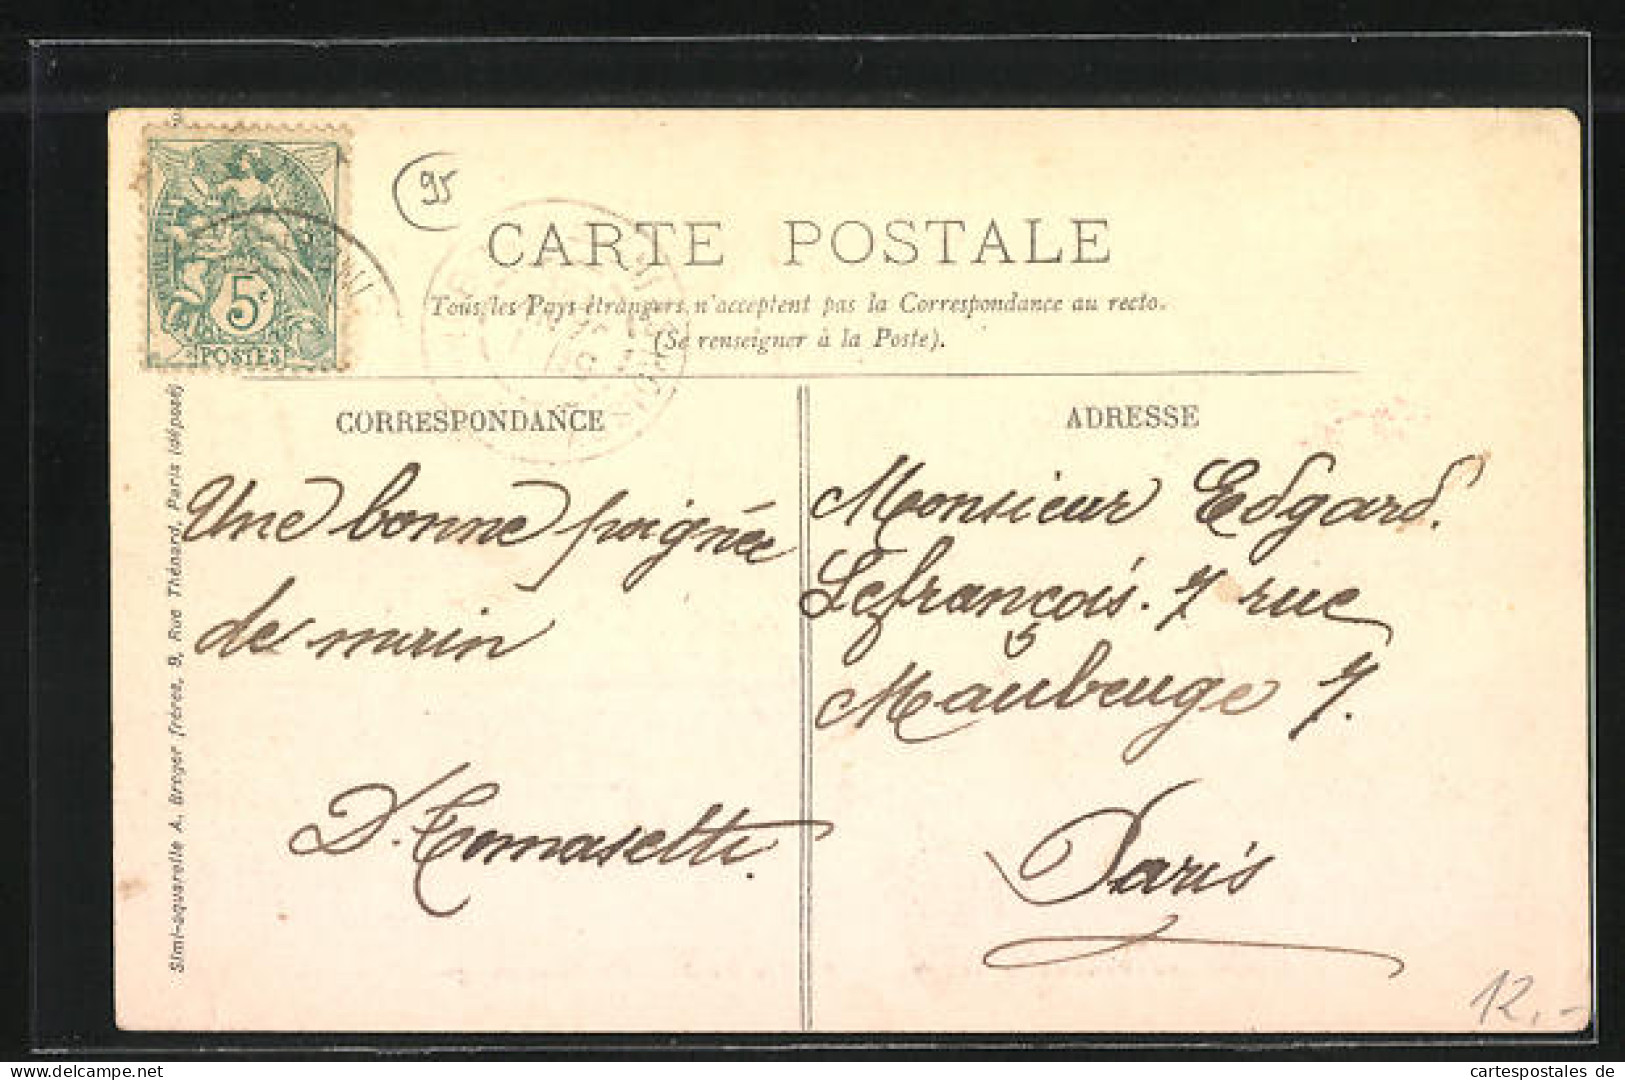 95
CARTE POSTALE
Tous les Pays étrangers n'acceptent pas la Correspondance au recto.
(Se renseigner à la Poste).
5c
POSTES
CORRESPONDANCE
Une bonne poignée
de main
D. Tomaselli.
ADRESSE
Monsieur Edgard.
Lefrançois. 7 rue
Maubeuge 7.
Paris
Simi-aquarelle A. Breger frères, 9, Rue Thénard, Paris (déposé)
12.-
cartespostales de